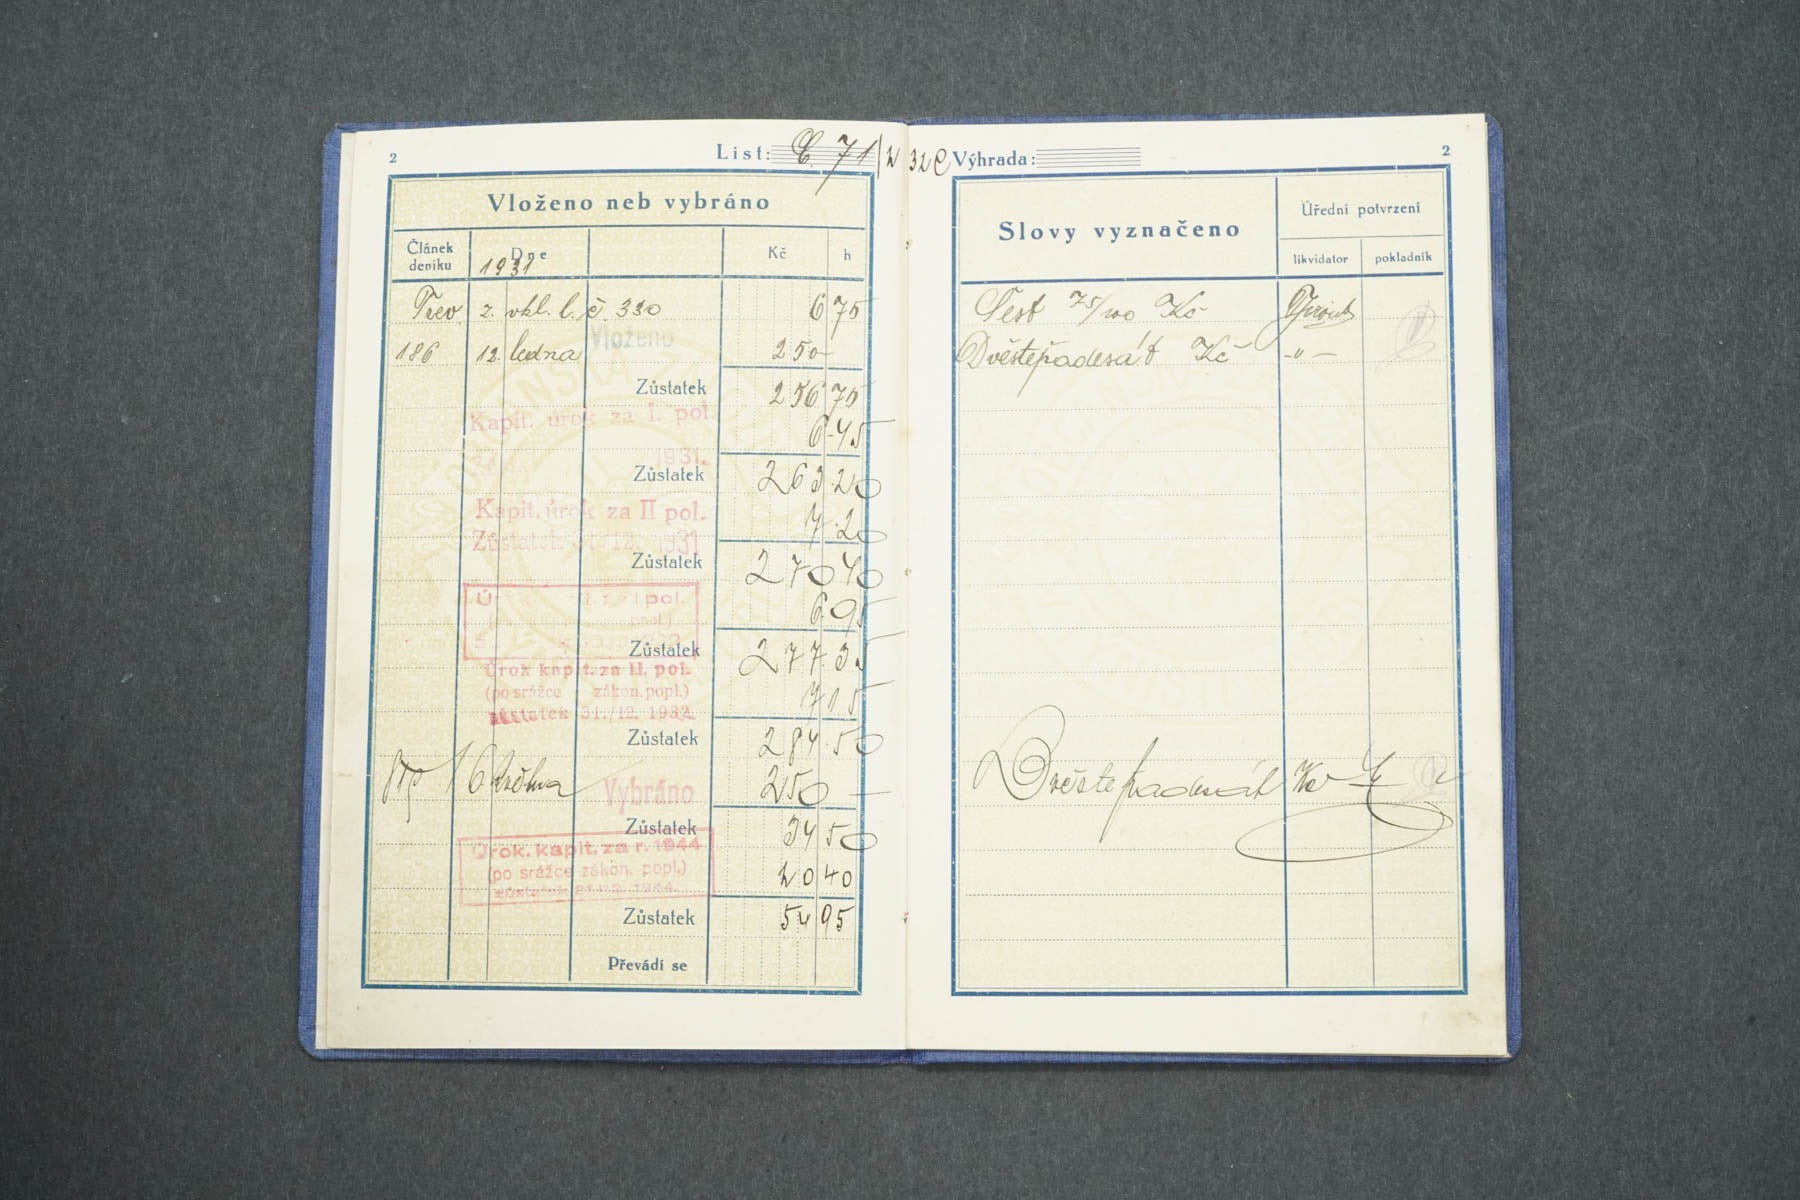 2
List: C. 71
Vloženo neb vybráno
Článek deníku
Dne
1931
Kč
h
Přev. z. vkl. l. č. 330 6 75
Vloženo
186 12. ledna 250 –
Zůstatek 256 75
Kapit. úrok za I. pol. 6.45
1931.
Zůstatek 263.20
Kapit. úrok za II pol. 7.20
Zůstatek 31./12. 1931
Zůstatek 270 40
I pol. 6 95
Zůstatek 277.35
Úrok kapit. za II. pol.
(po srážce zákon. popl.) 7 15
zůstatek 31./12. 1932
Zůstatek 284.50
16 Vybráno 250 –
Zůstatek 34 50
Úrok. kapit. za r. 1944
(po srážce zákon. popl.) 20 40
zůstatek 31.12. 1944.
Zůstatek 54 95
Převádí se
Výhrada:
2
Slovy vyznačeno
Úřední potvrzení
likvidator
pokladník
Šest 75/100 Kč
Dvěstepadesát Kč -"-
Dvěstepadesát Kč